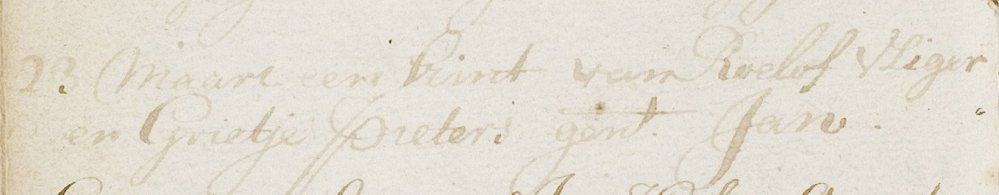 23 Maart een kint van Roelof Vliger
en Grietje Pieters gent. Jan.